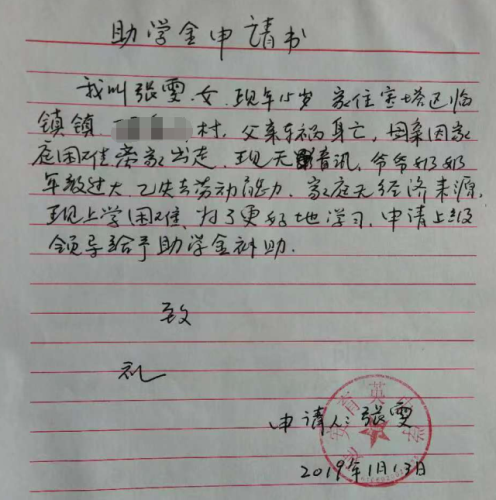 助学金申请书
我叫张雯,女,现年15岁 家住宝塔区临
镇镇 村,父亲车祸身亡,母亲因家
庭困难弃家出走,现无音讯,爷爷奶奶
年数过大,已失去劳动能力,家庭无经济来源,
现上学困难,为了更好地学习,申请上级
领导给予助学金补助.
致
礼
申请人:张雯
2019年1月13日
育英